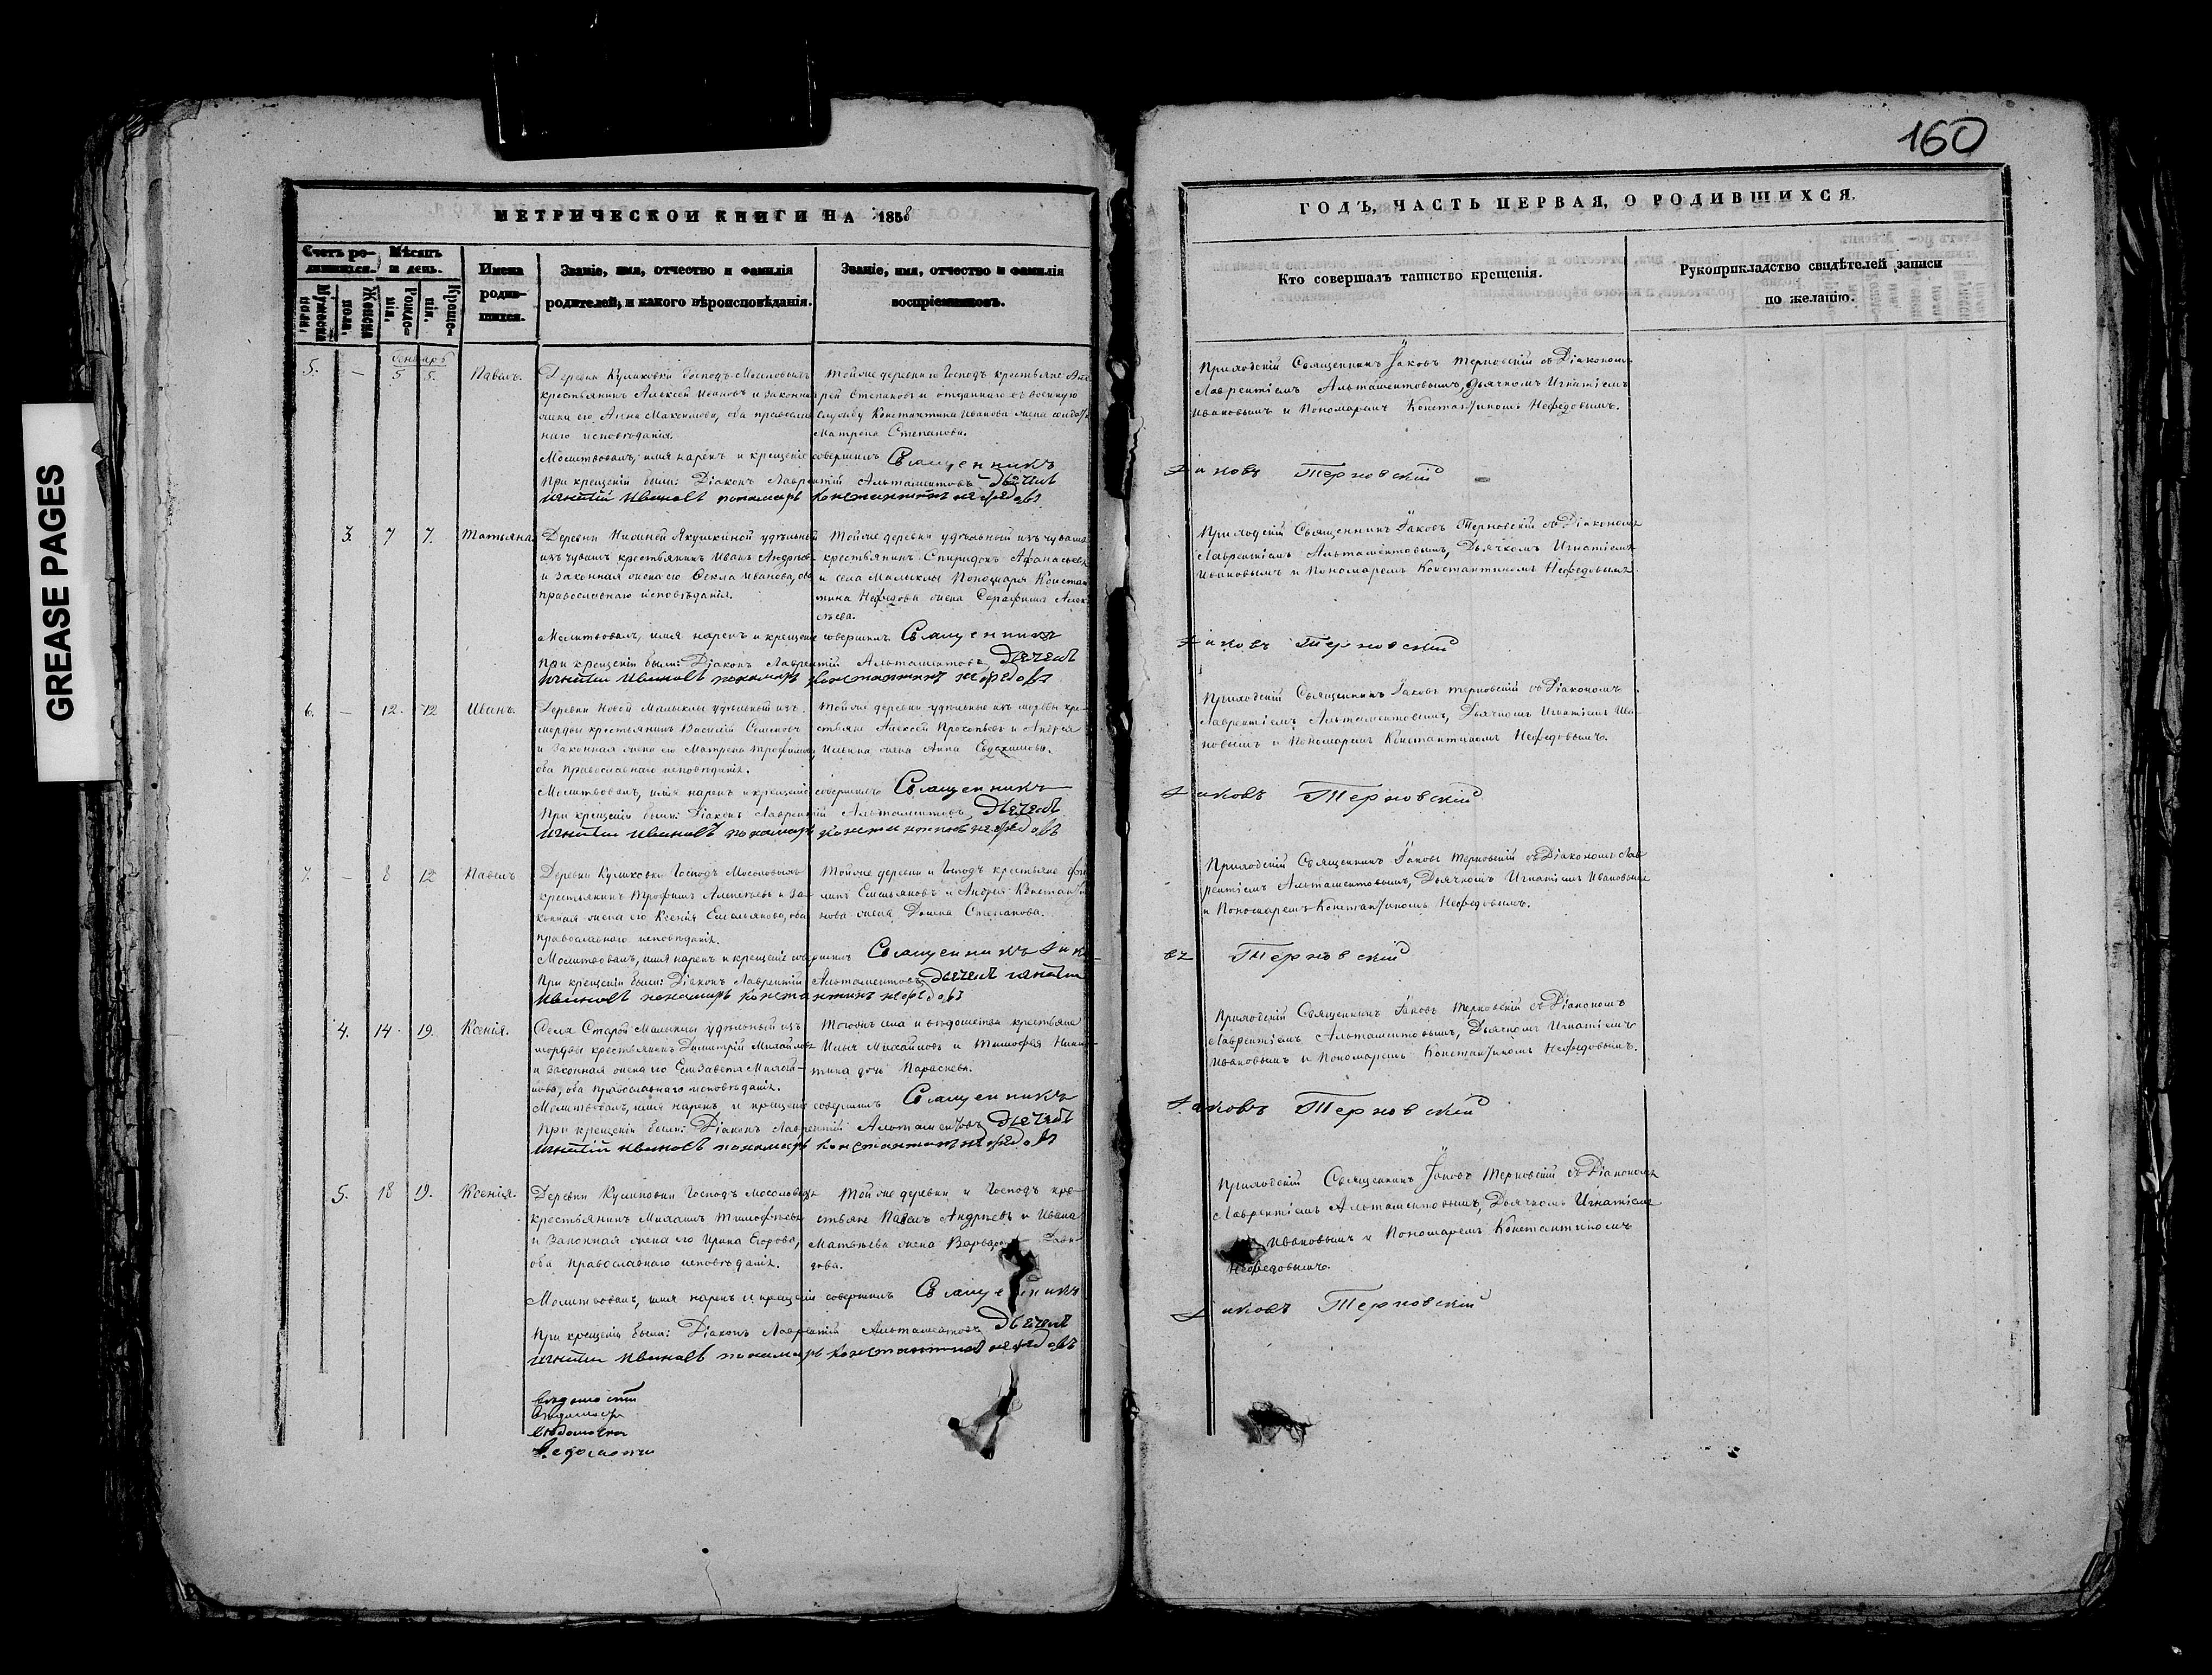 GREASE PAGES
160
МЕТРИЧЕСКОЙ КНИГИ НА 1858
ГОДЪ, ЧАСТЬ ПЕРВАЯ, О РОДИВШИХСЯ.
Счетъ ро-
дившихся.
Мѣсяцъ
и день.
Мужеска
пола.
Женска
пола.
Рожде-
нія.
Креще-
нія.
Имена
родив-
шихся.
Званіе, имя, отчество и фамилія
родителей, и какого вѣроисповѣданія.
Званіе, имя, отчество и фамилія
воспріемниковъ.
Кто совершалъ таинство крещенія.
Рукоприкладство свидѣтелей записи
по желанію.
5. — Генварь 5 5. Павелъ.
Деревни Куликовки Господъ Мосоловыхъ
крестьянинъ Алексей Ивановъ и законная
жена его Анна Максимова, оба православ
наго исповѣданія.
Тойже деревни и Господъ крестьяне
Степановъ и отданнаго въ военную
службу Константина Иванова жена
Матрена Степанова.
Молитвовалъ, имя нарекъ и крещеніе совершилъ Священникъ
Іаковъ Терновскій
При крещеніи были: Діаконъ Лаврентій Альтаментовъ Дьячекъ
Игнатій Ивановъ пономарь Константинъ Нефедовъ
Приходскій Священникъ Іаковъ Терновскій съ Діакономъ
Лаврентіемъ Альтаментовымъ, Дьячкомъ Игнатіемъ
Ивановымъ и Пономаремъ Константиномъ Нефедовымъ.
3. 7 7. Татьяна
Деревни Нижней Якушкиной удѣльный
изъ чувашъ крестьянинъ Иванъ Андреевъ
и законная жена его Фекла Иванова, оба
православнаго исповѣданія.
Тойже деревни удѣльный изъ чувашъ
крестьянинъ Спиридонъ Афанасьевъ
и села Малыклы Пономаря Констан
тина Нефедова жена Серафима Алек
сѣева.
Молитвовалъ, имя нарекъ и крещеніе совершилъ Священникъ
Іаковъ Терновскій
При крещеніи были: Діаконъ Лаврентій Альтаментовъ Дьячекъ
Игнатій Ивановъ пономарь Константинъ Нефедовъ
Приходскій Священникъ Іаковъ Терновскій съ Діакономъ
Лаврентіемъ Альтаментовымъ, Дьячкомъ Игнатіемъ
Ивановымъ и Пономаремъ Константиномъ Нефедовымъ.
6. — 12. 12 Иванъ.
Деревни Новой Малыклы удѣльный изъ
мордвы крестьянинъ Василій Семеновъ
и законная жена его Матрена Трофимова,
оба Православнаго исповѣданія.
Тойже деревни удѣльные изъ мордвы кре-
стьяне Алексей Прокопьевъ и Андрея
Ильина жена Анна Евдокимова.
Молитвовалъ, имя нарекъ и крещеніе совершилъ Священникъ
Іаковъ Терновскій
При крещеніи были: Діаконъ Лаврентій Альтаментовъ Дьячекъ
Игнатій Ивановъ пономарь Константинъ Нефедовъ
Приходскій Священникъ Іаковъ Терновскій съ Діакономъ
Лаврентіемъ Альтаментовымъ, Дьячкомъ Игнатіемъ Ива-
новымъ и Пономаремъ Константиномъ Нефедовымъ.
7. — 8 12 Павелъ
Деревни Куликовки Господъ Мосоловыхъ
крестьянинъ Трофимъ Алексеевъ и за-
конная жена его Ксенія Емельянова, оба
православнаго исповѣданія.
Тойже деревни и Господъ крестьяне Фи
липъ Емельяновъ и Андрея Константи
нова жена Домна Степанова.
Молитвовалъ, имя нарекъ и крещеніе совершилъ Священникъ Іако-
въ Терновскій
При крещеніи были: Діаконъ Лаврентій Альтаментовъ Дьячекъ Игнатій
Ивановъ пономарь Константинъ Нефедовъ
Приходскій Священникъ Іаковъ Терновскій съ Діакономъ Лав
рентіемъ Альтаментовымъ, Дьячкомъ Игнатіемъ Ивановымъ
и Пономаремъ Константиномъ Нефедовымъ.
4. 14. 19. Ксенія.
Села Старой Малыклы удѣльный изъ
мордвы крестьянинъ Димитрій Михайловъ
и законная жена его Елизавета
оба православнаго исповѣданія.
Тогожъ села и вѣдомства крестьяне
Илья Михайловъ и Тимофея Ники-
тина дочь Параскева.
Молитвовалъ, имя нарекъ и крещеніе совершилъ Священникъ
Іаковъ Терновскій
При крещеніи были: Діаконъ Лаврентій Альтаментовъ Дьячекъ
Игнатій Ивановъ пономарь Константинъ Нефедовъ
Приходскій Священникъ Іаковъ Терновскій съ Діакономъ
Лаврентіемъ Альтаментовымъ, Дьячкомъ Игнатіемъ
Ивановымъ и Пономаремъ Константиномъ Нефедовымъ.
5. 18 19. Ксенія.
Деревни Куликовки Господъ Мосоловыхъ
крестьянинъ Михаилъ Тимофѣевъ
и Законная жена его Ирина Егорова,
оба Православнаго исповѣданія.
Тойже деревни и Господъ кре-
стьяне Павелъ Андреевъ и Ивана
Матвѣева жена Варвара Дави-
дова.
Молитвовалъ, имя нарекъ и крещеніе совершилъ Священникъ
Іаковъ Терновскій
При крещеніи были: Діаконъ Лаврентій Альтаментовъ Дьячекъ
Игнатій Ивановъ пономарь Константинъ Нефедовъ
Приходскій Священникъ Іаковъ Терновскій съ Діакономъ
Лаврентіемъ Альтаментовымъ, Дьячкомъ Игнатіемъ
Ивановымъ и Пономаремъ Константиномъ
Нефедовымъ.